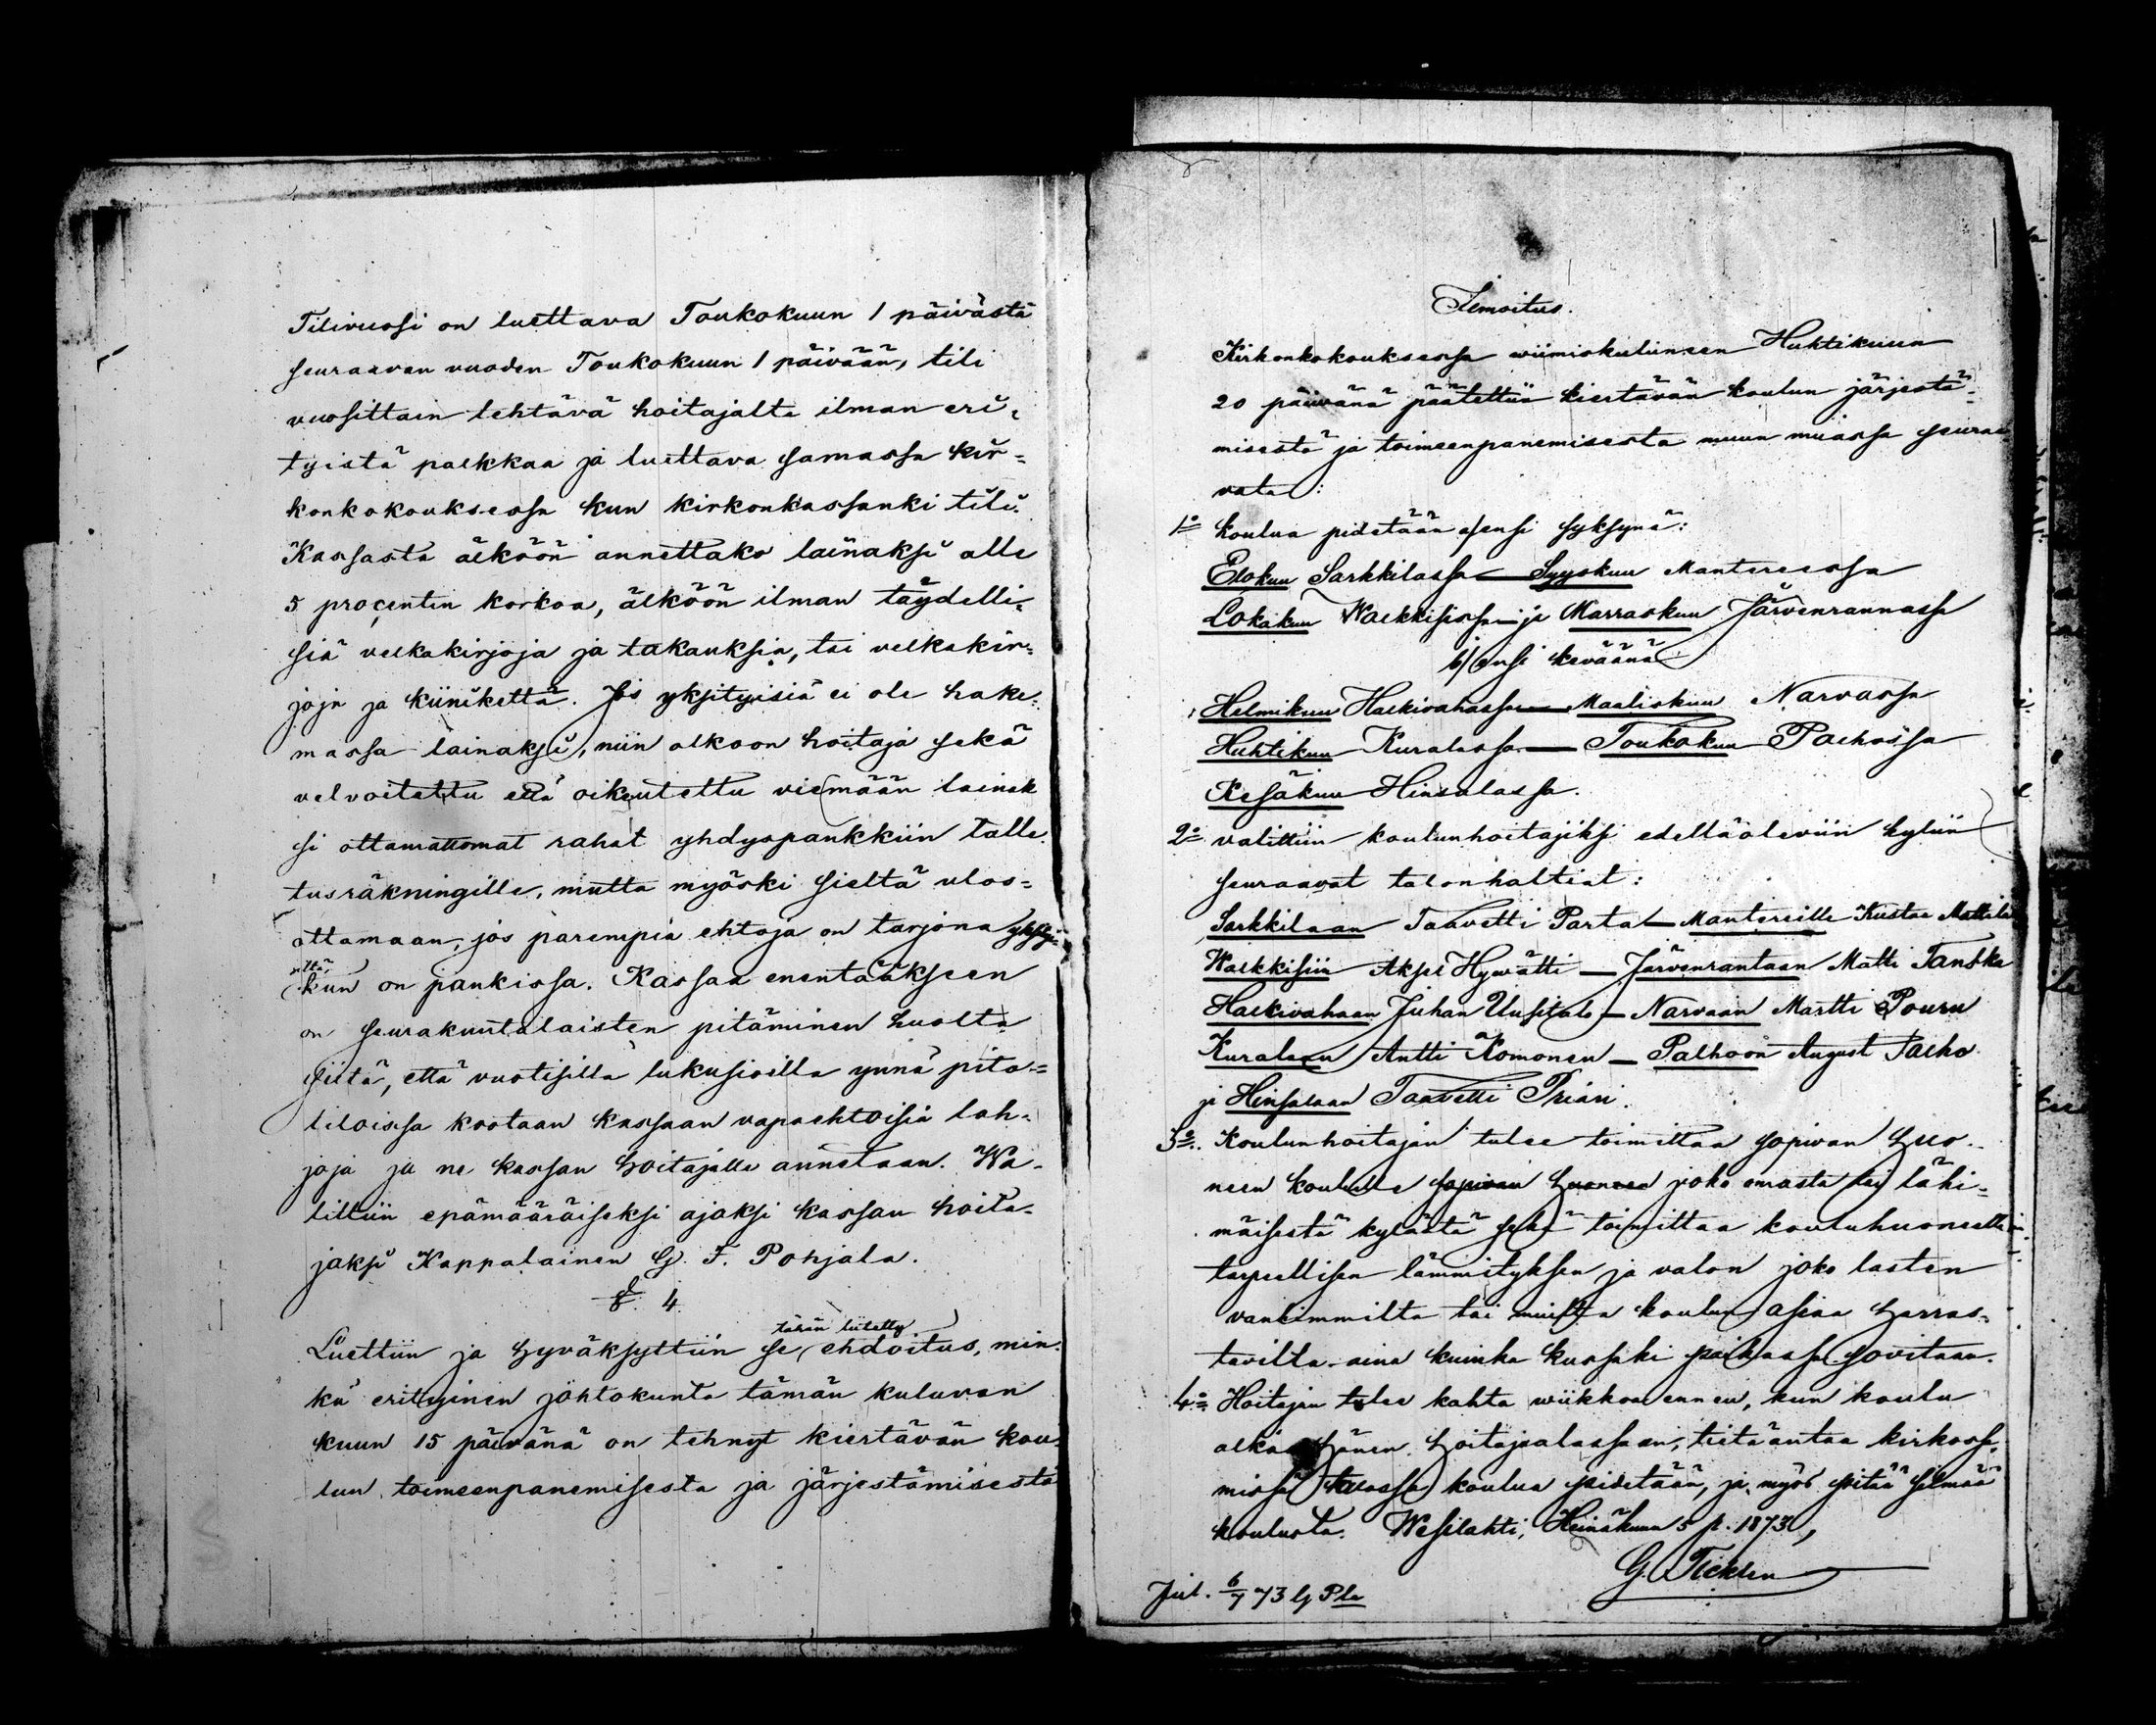 Tilivuosi on luettava Toukokuun 1 päivästä
seuraavan vuoden Toukokuun 1 päivään, tili
vuosittain tehtävä hoitajalta ilman eri-
tyistä palkkaa ja luettava samassa kir-
konkokouksessa kun kirkonkassanki tili.
Kassasta älköön annettako lainaksi alle
5 procentin korkoa, älköön ilman täydelli-
siä velkakirjoja ja takauksia, tai velkakir-
joja ja kiinikettä. Jos yksityisiä ei ole hake-
massa lainaksi, niin olkoon hoitaja sekä
velvoitettu että oikeutettu viemään lainak
si ottamattomat rahat yhdyspankkiin talle-
tusräkningille, mutta myöski sieltä ulos-
ottamaan, jos parempia ehtoja on tarjona yksityi-
siltä,
kun on pankissa. Kassaa enentääkseen
on seurakuntalaisten pitäminen huolta
siitä, että vuotisilla lukusioilla ynnä pito-
tiloissa kootaan kassaan vapaehtoisia lah-
joja ja ne kassan hoitajalle annetaan. Wa-
littiin epämääräiseksi ajaksi kassan hoita-
jaksi Kappalainen G. F. Pohjala.
§. 4.
tähän liitetty
Luettiin ja hyväksyttiin se ehdoitus, min-
kä erityinen johtokunta tämän kuluvan
kuun 15 päivänä on tehnyt kiertävän kou-
lun toimeenpanemisesta ja järjestämisestä
Ilmoitus.
Kirkonkokouksessa wiimiskuluneen Huhtikuun
20 päivänä päätettiin kiertävän koulun järjestä-
misestä ja toimeenpanemisesta muun muassa seuraa-
vata:
1o koulua pidetään a) ensi syksynä:
Elokuu Sarkkilassa — Syyskuu Mantereessa
Lokakuu Walkkisissa — ja Marraskuu Järvenrannassa
b) ensi keväänä
Helmikuu Halkivahassa — Maaliskuu Narvassa
Huhtikuu Kuralassa — Toukokuu Palhossa
Kesäkuu Hinsalassa.
2o valittiin koulunhoitajiksi edelläoleviin kyliin
seuraavat talonhaltiat:
Sarkkilaan Taavetti Parta — Mantereille Kustaa Mattila
Walkkisiin Aksel Hyvätti — Järvenrantaan Matti Tanska
Halkivahaan Juhan Uusitalo — Narvaan Martti Pouru
Kuralaan Antti Komonen — Palhoon August Palho
ja Hinsalaan Taavetti Priäri.
3o. Koulunhoitajan tulee toimittaa sopivan huo-
neen koululle sopivan huoneen joko omasta tai lähi-
mäisestä kylästä sekä toimittaa kouluhuoneelle
tarpeellisen lämmityksen ja valon joko lasten
vanhimmilta tai muilta koulun asiaa harras-
tavilta aina kuinka kussaki paikassa sovitaan.
4o Hoitajan tulee kahta wiikkoa ennen, kun koulu
alkaa hänen hoitajaalassaan, tietä antaa kirkossa
missä talossa koulua pidetään, ja myös pitää silmää
koulusta. Wesilahti, Heinäkuun 5 p. 1873,
G. Ticklén
Jul. 6/7 73 G Pla